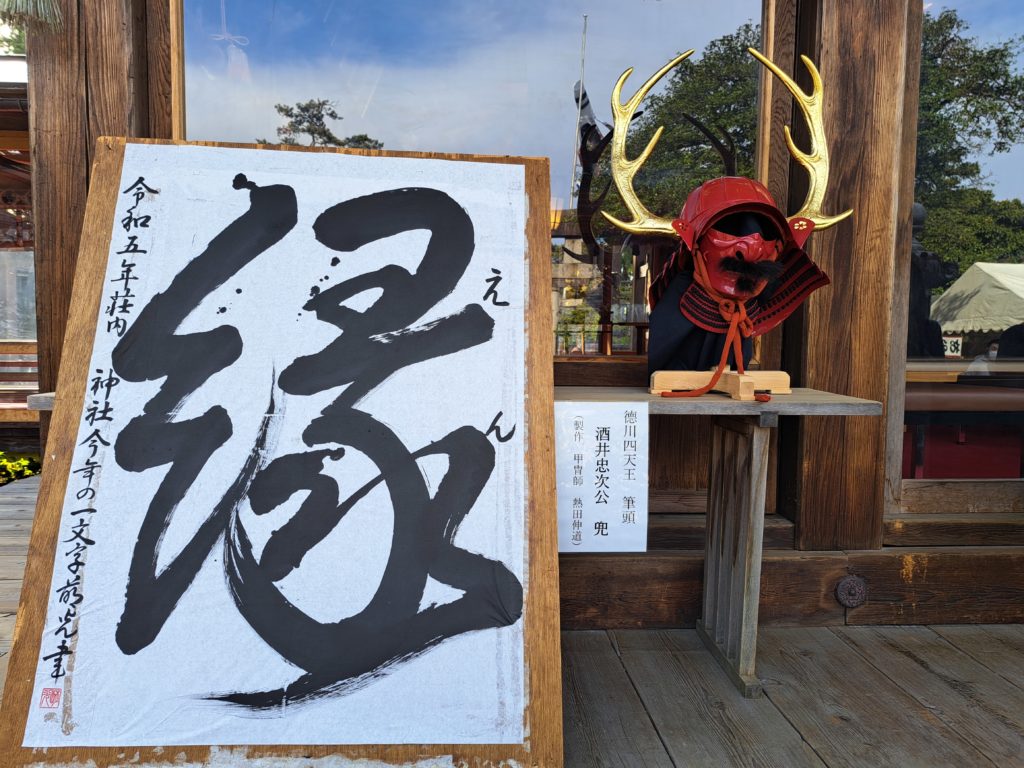 縁
えん
令和五年荘内
神社今年の一文字
徳川四天王 筆頭
酒井忠次公 兜
(製作 甲冑師 熱田伸道)